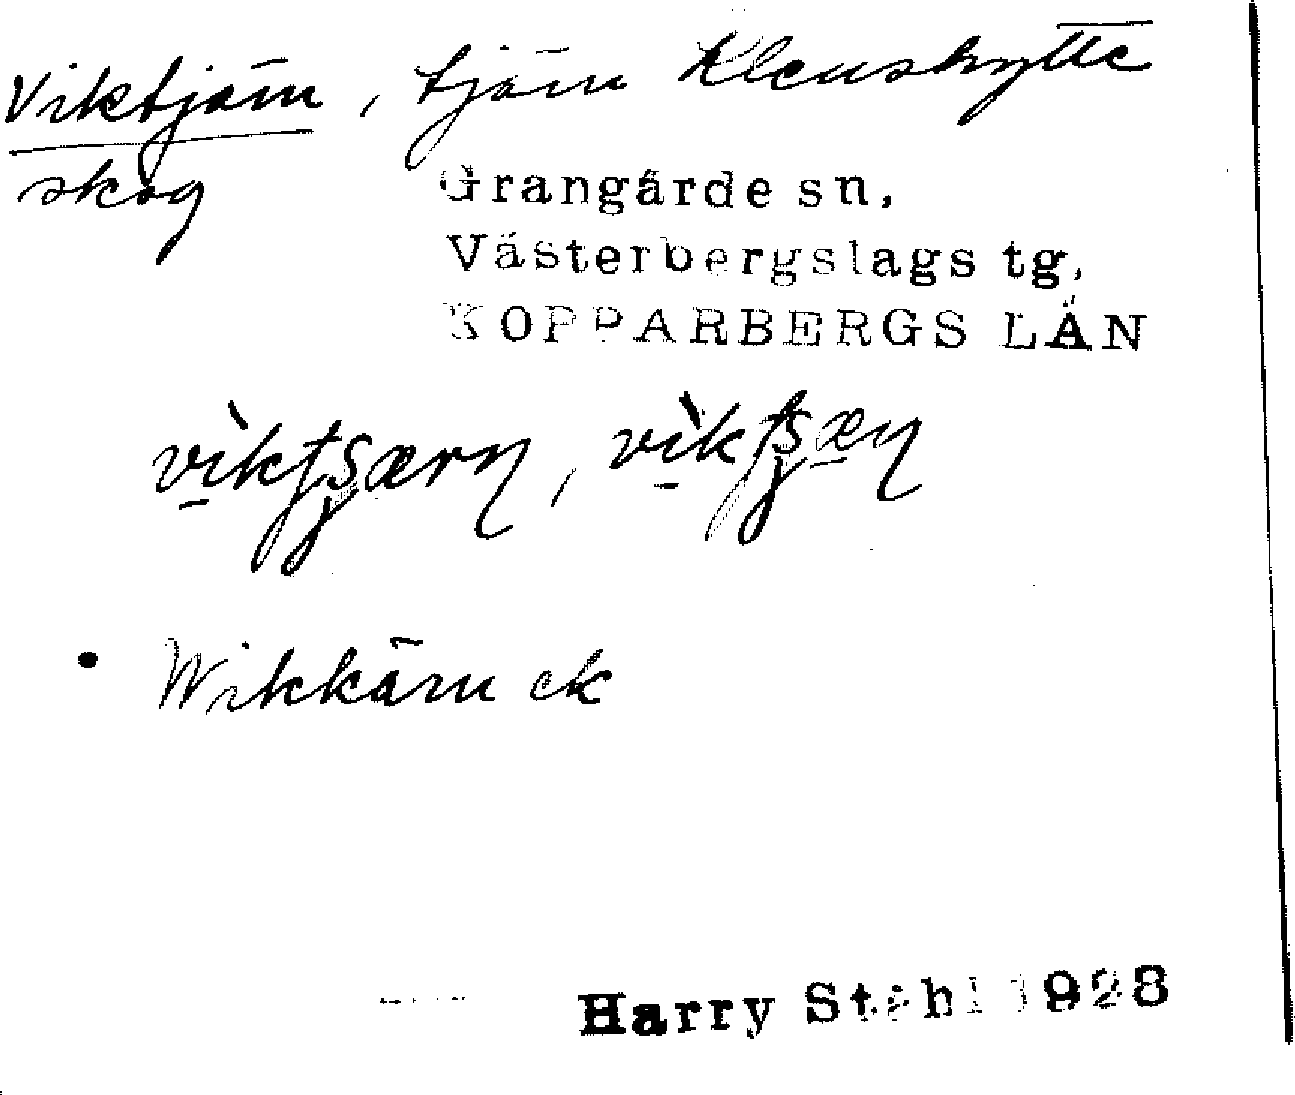 Viktjärn, tjärn Klenshytte
skog
Grangärde sn.
Västerbergslags tg.
KOPPARBERGS LÄN
Wikkärn ek
Harry Ståhl 1928